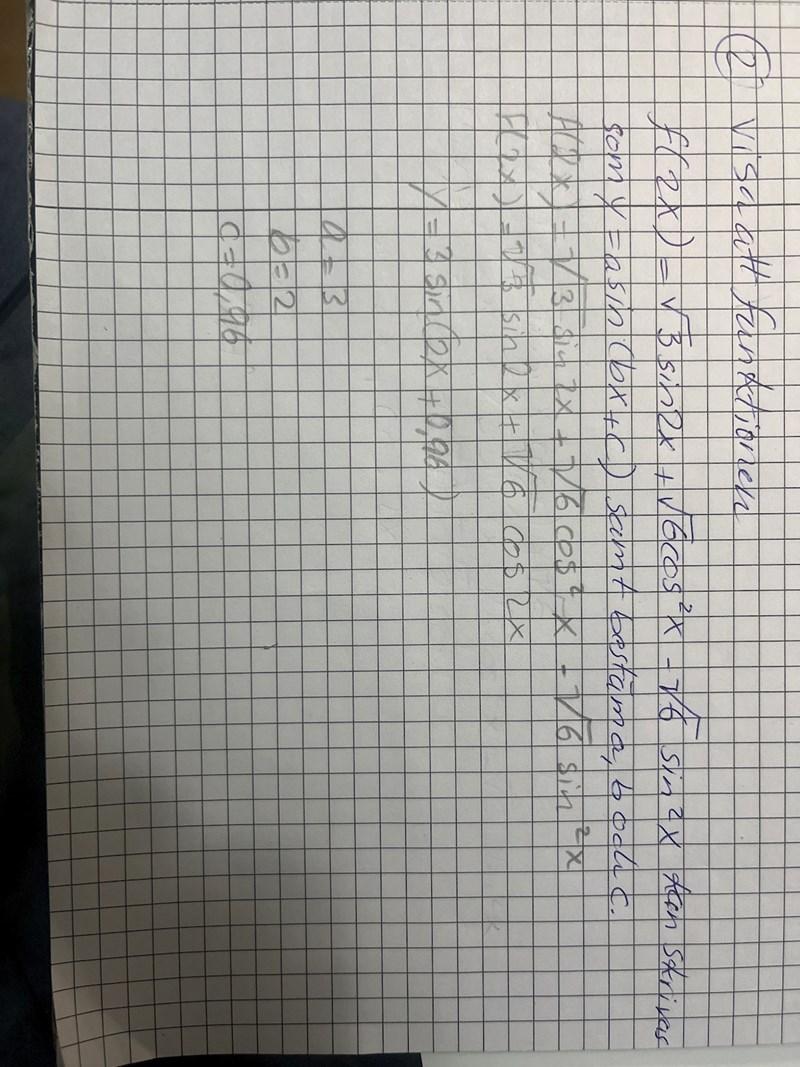 ② Visa att funktionen
f(2x) = √3 sin2x + √6cos²x - √6 sin²x kan skrivas
som y = asin (bx+c) samt bestäma, b och c.
f(2x) = √3 sin2x + √6 cos²x - √6 sin²x
f(2x) = √3 sin2x + √6 cos 2x
y = 3 sin(2x + 0,96)
a = 3
b = 2
c = 0,96